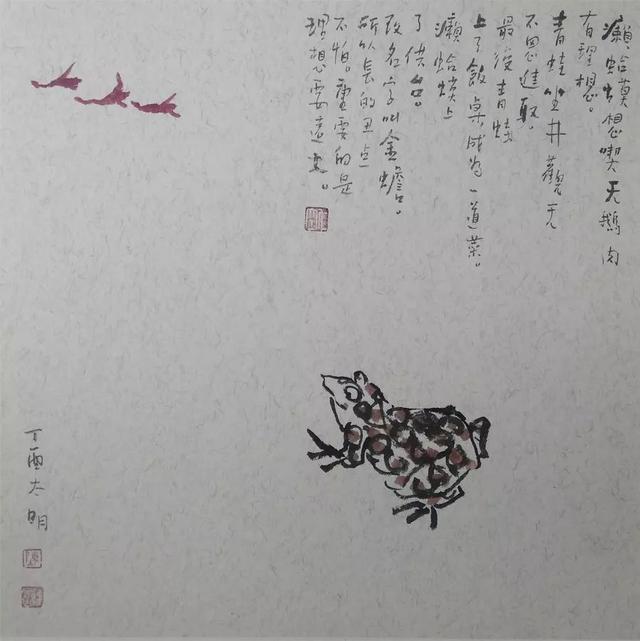 癩蛤蟆想喫天鹅肉
有理想。
青蛙坐井觀天
不思進取。
最後青蛙
上了飯桌成为一道菜。
癩蛤蟆上
了供台。
改名字叫金蟾。
所以長的丑点
不怕。重要的是
理想要遠大。
丁酉太明